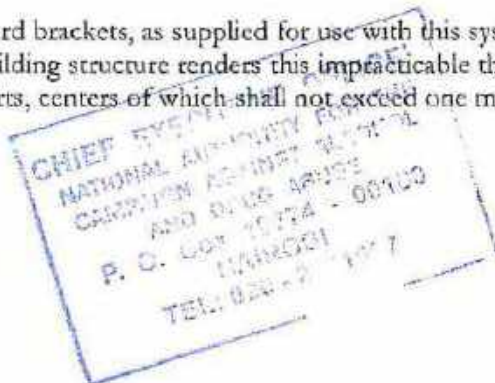 rd brackets, as supplied for use with this sys
ilding structure renders this impracticable th
rts, centers of which shall not exceed one m
CHIEF
NATIONAL AUTHORITY FOR THE
CAMPAIGN AGAINST ALCOHOL
AND DRUG ABUSE
P. O. 00100
NAIROBI
TEL: 020 - 2